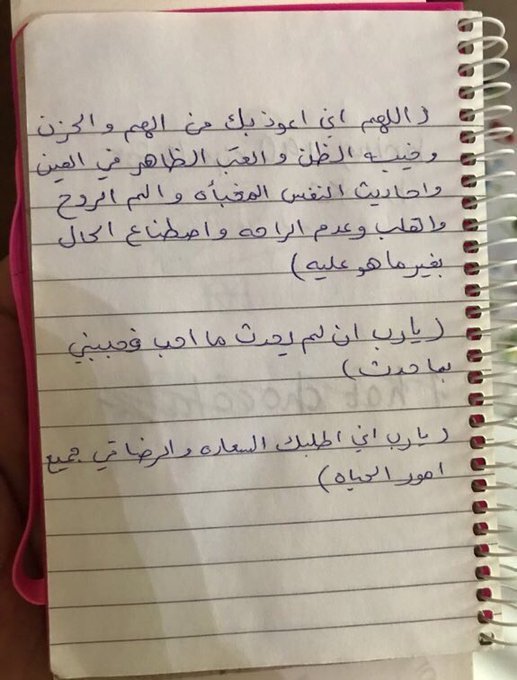 (اللهم اني اعوذ بك من الهم والحزن
وخيبه الظن والتعب الظاهر في العين
واحاديث النفس المخبأه والم الروح
والقلب وعدم الراحه واصطناع الحال
بغير ما هو عليه)
(يارب ان لم يحدث ما احب فحببني
بما حدث)
(يارب اني اطلبك السعاده والرضا في جميع
امور الحياه)
hot chocolate